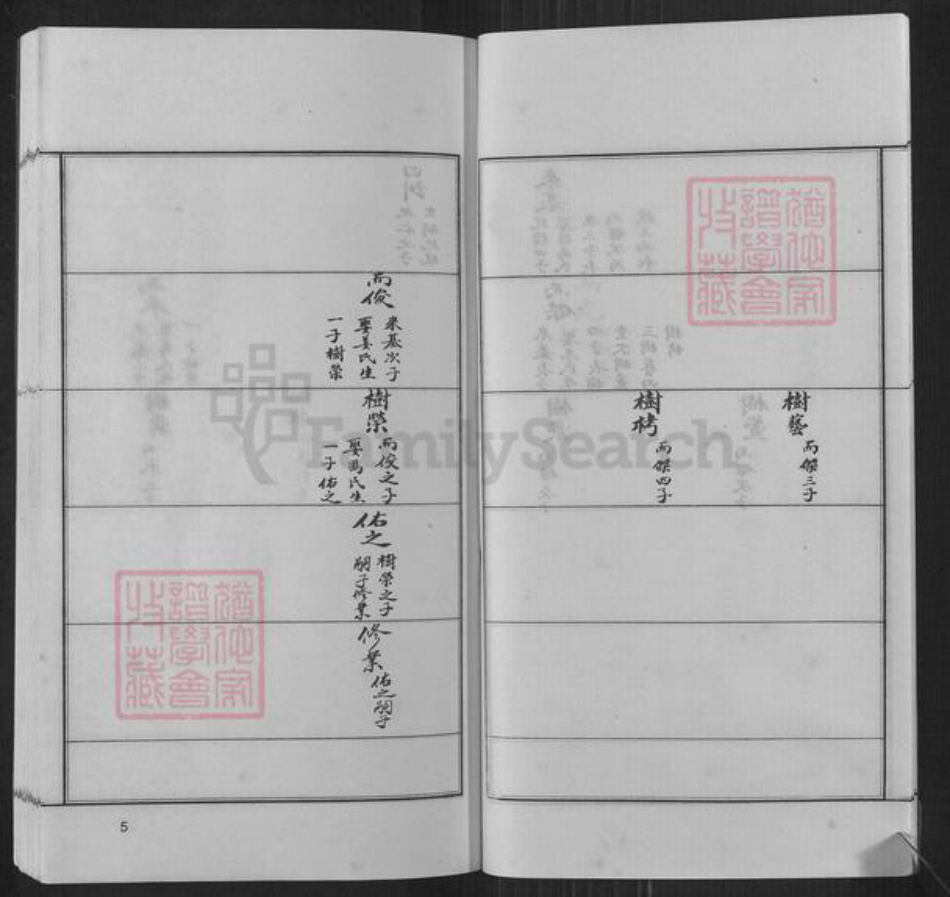 樹藝
而傑三子
樹栲
而傑四子
而俊
來基次子
娶姜氏生
一子樹榮
樹榮
而俊之子
娶馬氏生
一子佑之
佑之
樹榮之子
嗣子修業
修業
佑之嗣子
猶他家
譜學會
收藏
猶他家
譜學會
收藏
FamilySearch
5